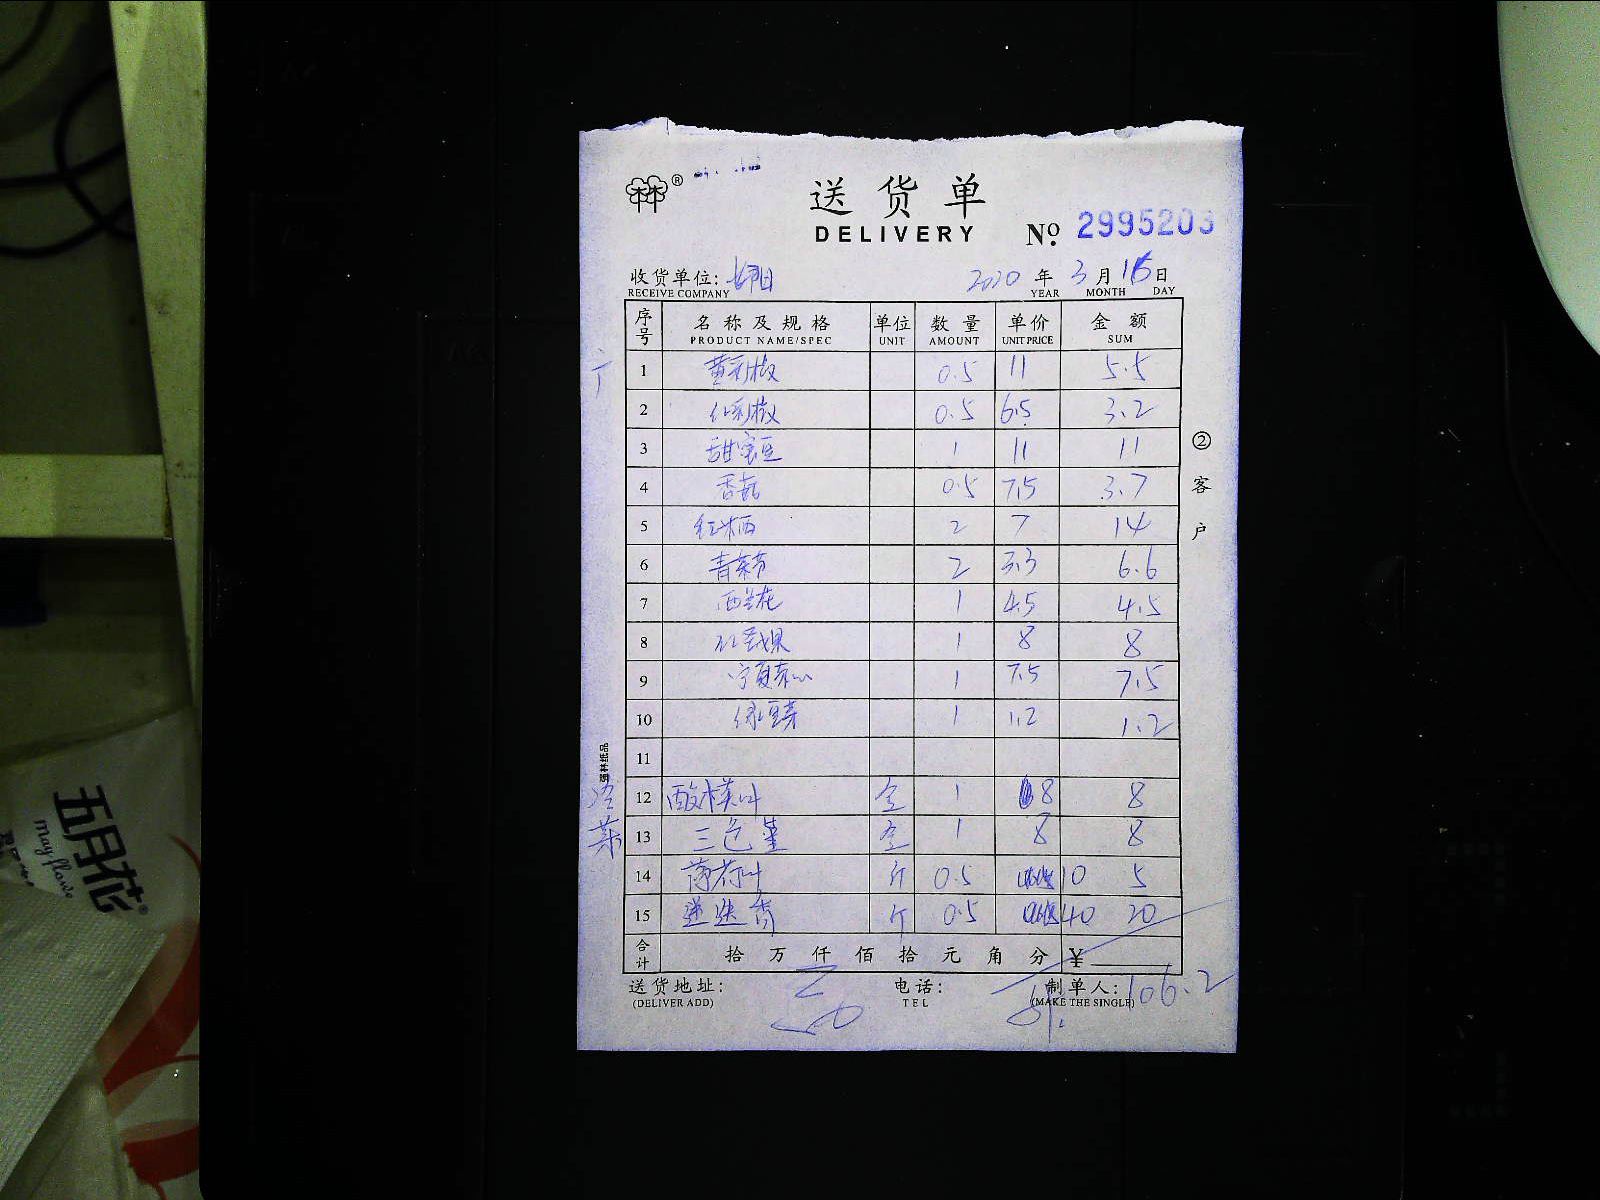 送货单
DELIVERY
No. 2995203
收货单位: 2020 年 3 月 16 日
RECEIVE COMPANY YEAR MONTH DAY
序号 名称及规格 单位 数量 单价 金额
PRODUCT NAME/SPEC UNIT AMOUNT UNIT PRICE SUM
1 黄彩椒 0.5 11 5.5
2 红彩椒 0.5 6.5 3.2
3 甜蜜豆 1 11 11
4 香菇 0.5 7.5 3.7
5 红西 2 7 14
6 青 2 3.3 6.6
7 西兰花 1 4.5 4.5
8 红圣女果 1 8 8
9 宁夏菜心 1 7.5 7.5
10 绿豆芽 1 1.2 1.2
11
12 酸模叶 1 8 8
13 三色堇 1 8 8
14 薄荷叶 斤 0.5 10 5
15 迷迭香 斤 0.5 40 20
合计 拾万仟佰拾元角分 ¥
106.2
送货地址: 电话: 制单人:
(DELIVER ADD) TEL (MAKE THE SINGLE)
②客户
森林纸品
五月花
May flower